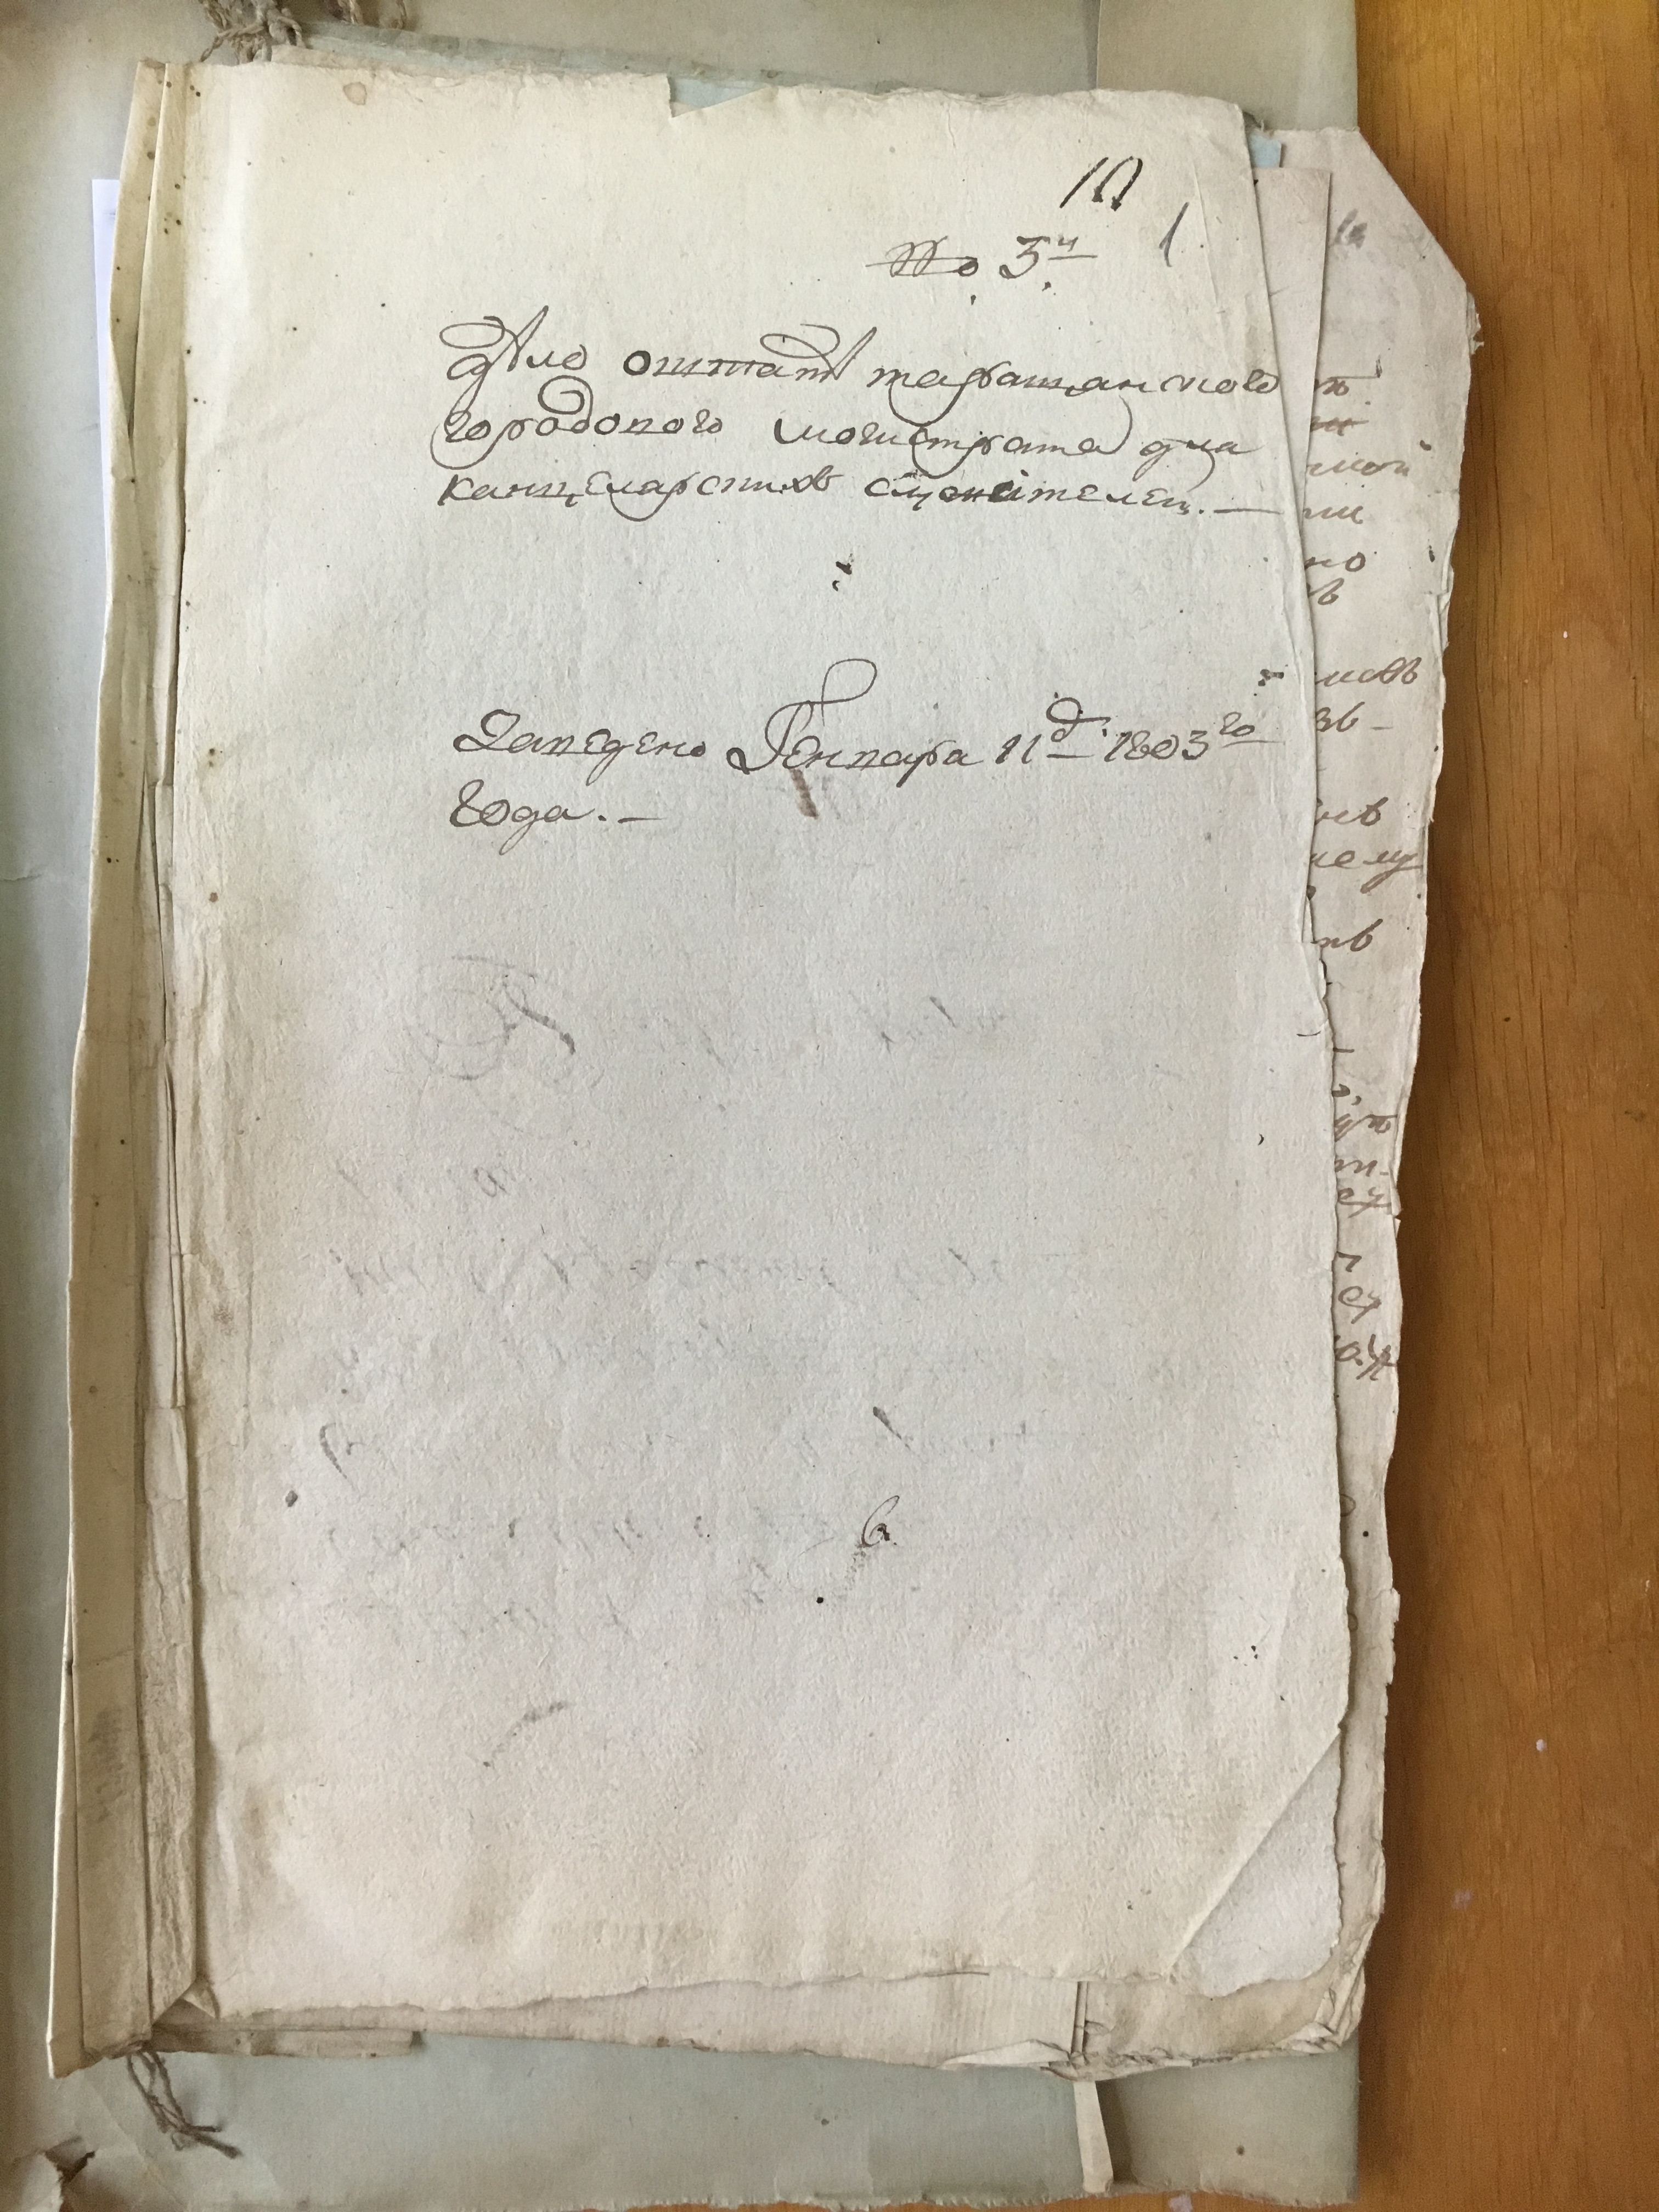 10
1
No 3й
Дѣло о штатѣ таращанского
городового магистрата для
канцелярских служителей. —
Заведено Генваря 11д. 1803го
Года. —